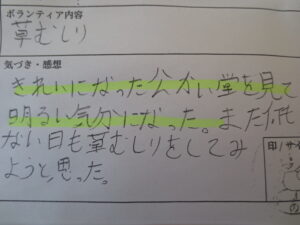 ボランティア内容
草むしり
気づき・感想
きれいになった公かい堂を見て
明るい気分になった。また
ない日も草むしりをしてみ
ようと思った。
印/サイ